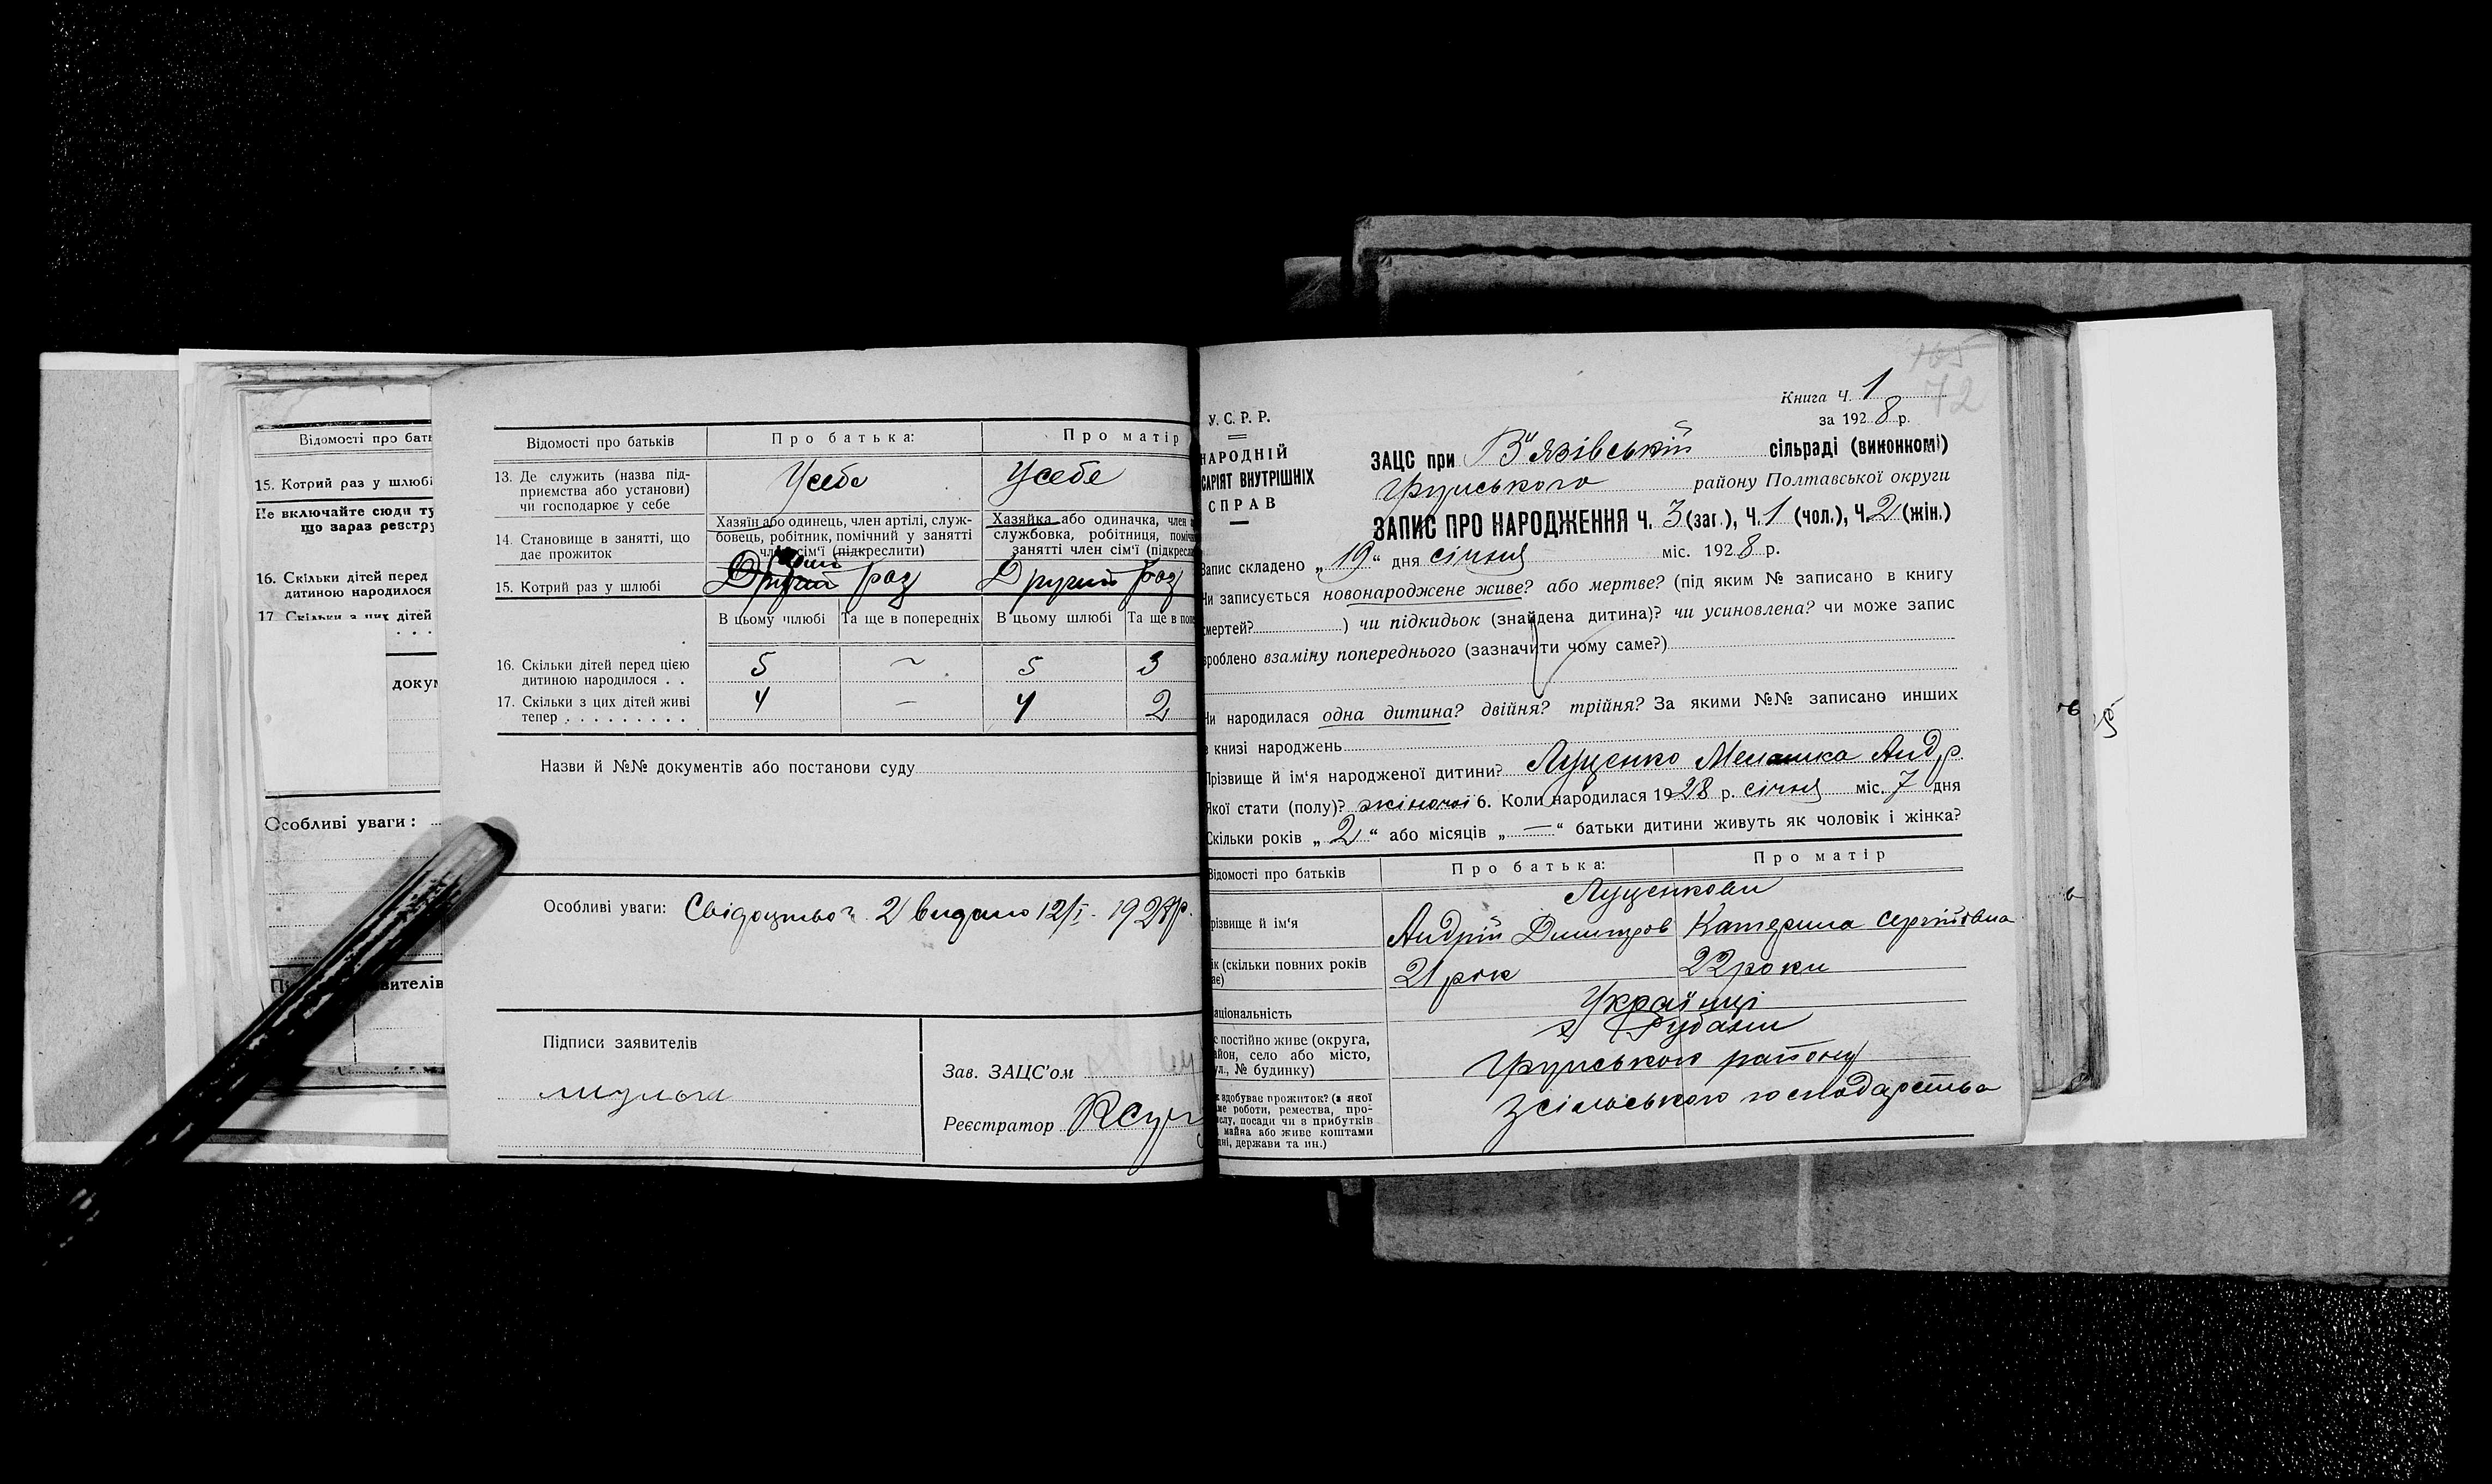 Відомості про бать
15. Котрий раз у шлюбі
Не включайте сюди ту
що зараз реєстру
16. Скільки дітей перед
дитиною народилося
17. Скільки з цих дітей
. . .
докум
Особливі уваги:
вителів
Відомості про батьків Про батька: Про матір
13. Де служить (назва під-
приємства або установи)
чи господарює у себе
У себе У себе
14. Становище в занятті, що
дає прожиток
Хазяїн або одинець, член артілі, служ-
бовець, робітник, помічний у занятті
член сім'ї (підкреслити)
Хазяйка або одиначка, член
службовка, робітниця, поміч
занятті член сім'ї (підкресл
15. Котрий раз у шлюбі раз Другий раз
В цьому шлюбі Та ще в попередніх В цьому шлюбі Та ще в поп
16. Скільки дітей перед цією
дитиною народилося . . 5 ~ 5 3
17. Скільки з цих дітей живі
тепер . . . . . . . . . 4 — 4 2
Назви й №№ документів або постанови суду
Особливі уваги: Свідоцтво 2 видано 12/I - 1928 р.
Підписи заявителів
Зав. ЗАЦС'ом
Реєстратор
165
72
Книга Ч. 1
за 1928 р.
У. С. Р. Р.
НАРОДНІЙ
САРІЯТ ВНУТРІШНІХ
СПРАВ
ЗАЦС при В'язівській сільраді (виконкомі)
Грунського району Полтавської округи
ЗАПИС ПРО НАРОДЖЕННЯ Ч. 3 (заг.), Ч. 1 (чол.), Ч. 2 (жін.)
Запис складено „19“ дня січня міс. 1928 р.
Чи записується новонароджене живе? або мертве? (під яким № записано в книгу
смертей? ) чи підкидьок (знайдена дитина)? чи усиновлена? чи може запис
зроблено взаміну попереднього (зазначити чому саме?)
Чи народилася одна дитина? двійня? трійня? За якими №№ записано инших
в книзі народжень
Прізвище й ім'я народженої дитини? Луценко Мелашка Андр.
Якої стати (полу)? жіночої 6. Коли народилася 1928 р. січня міс. 7 дня
Скільки років „2“ або місяців „—“ батьки дитини живуть як чоловік і жінка?
Відомості про батьків Про батька: Про матір
Луценкови
різвище й ім'я Андрій Дмитров Катерина Сергіївна
ік (скільки повних років
ає) 21 рік 22 роки
аціональність Українці
е постійно живе (округа,
айон, село або місто,
ул., № будинку)
Грунського району
к здобуває прожиток? (з якої
ме роботи, ремества, про-
слу, посади чи з прибутків
майна або живе коштами
дні, держави та ин.)
З сільського господарства